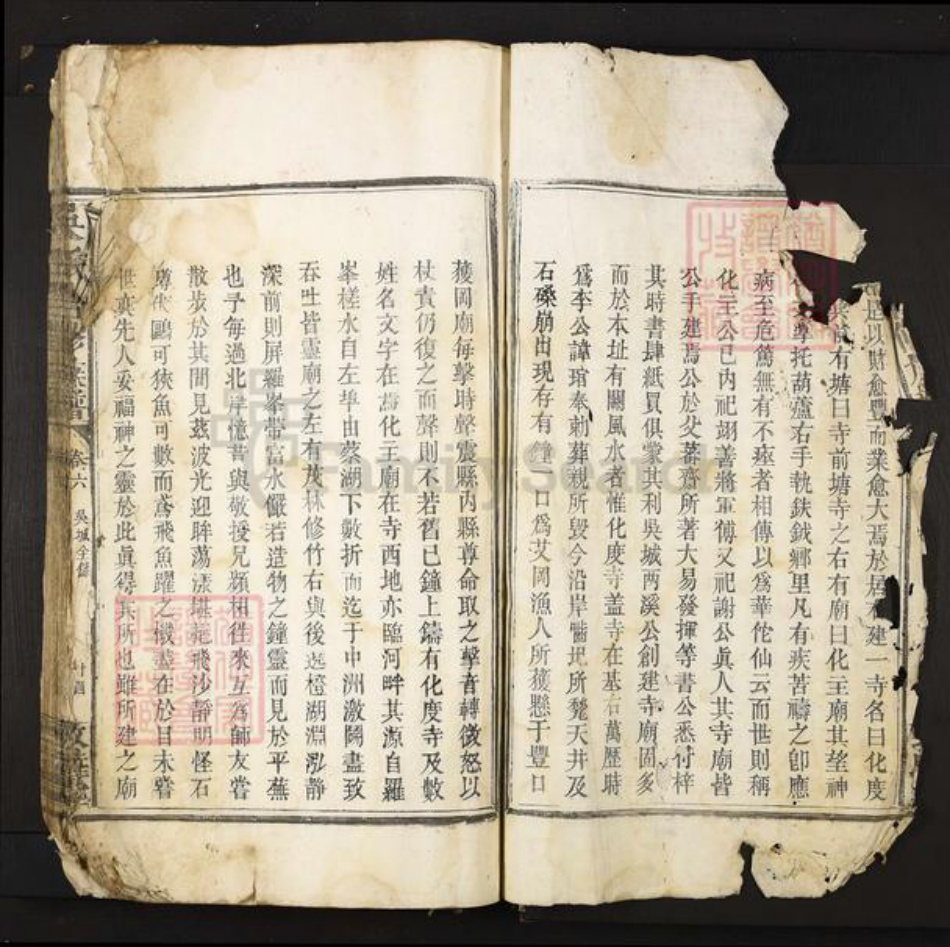 足以財愈豐而業愈大焉於居右建一寺名曰化度
有塘曰寺前塘寺之右有廟曰化主廟其塑神
尊托葫蘆右手執鉄鉞鄉里凡有疾苦禱之卽應
病至危篤無有不痊者相傳以爲華佗仙云而世則稱
化主公已內祀翊善將軍傅又祀謝公眞人其寺廟皆
公手建焉公於父莽齋所著大易發揮等書公悉付梓
其時書肆紙買俱蒙其利吳城两溪公創建寺廟固多
而於本址有關風水者惟化度寺盖寺在基右萬歷時
爲李公諱琯奉勅葬親所毀今沿岸嚙圯所甃天井及
石磉崩出現存有鐘一口爲艾岡漁人所獲懸于豐口
獲岡廟每擊時聲震縣內縣尊命取之擊音轉微怒以
杖責仍復之而聲則不若舊已鐘上鑄有化度寺及數
姓名文字在焉化主廟在寺西地亦臨河畔其源自羅
峯槎水自左埠由蔡湖下數折而迄于中洲激鬭盡致
吞吐皆靈廟之左有茂林修竹右與後遶橙湖淵泓靜
深前則屏羅峯帶富水儼若造物之鐘靈而見於平蕪
也予每過北岸憶昔與敬授兄頻相徃來互爲師友嘗
散步於其間見茲波光迎眸蕩漾堤菀飛沙靜明怪石
鷗可狹魚可數而鳶飛魚躍之機盡在於目未嘗
世裏先人妥福神之靈於此眞得其所也雖所建之廟
卷六
吳城全舊
FamilySearch